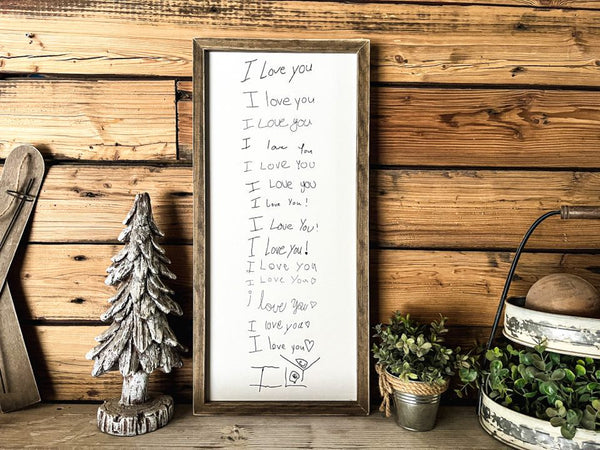 I Love you
I love you
I Love you
I love You
I LOVE YOU
I LOVE you
I Love You!
I Love You!
I Love you!
I Love You
I Love You♡
I love You♡
I love you♡
I love you♡
I